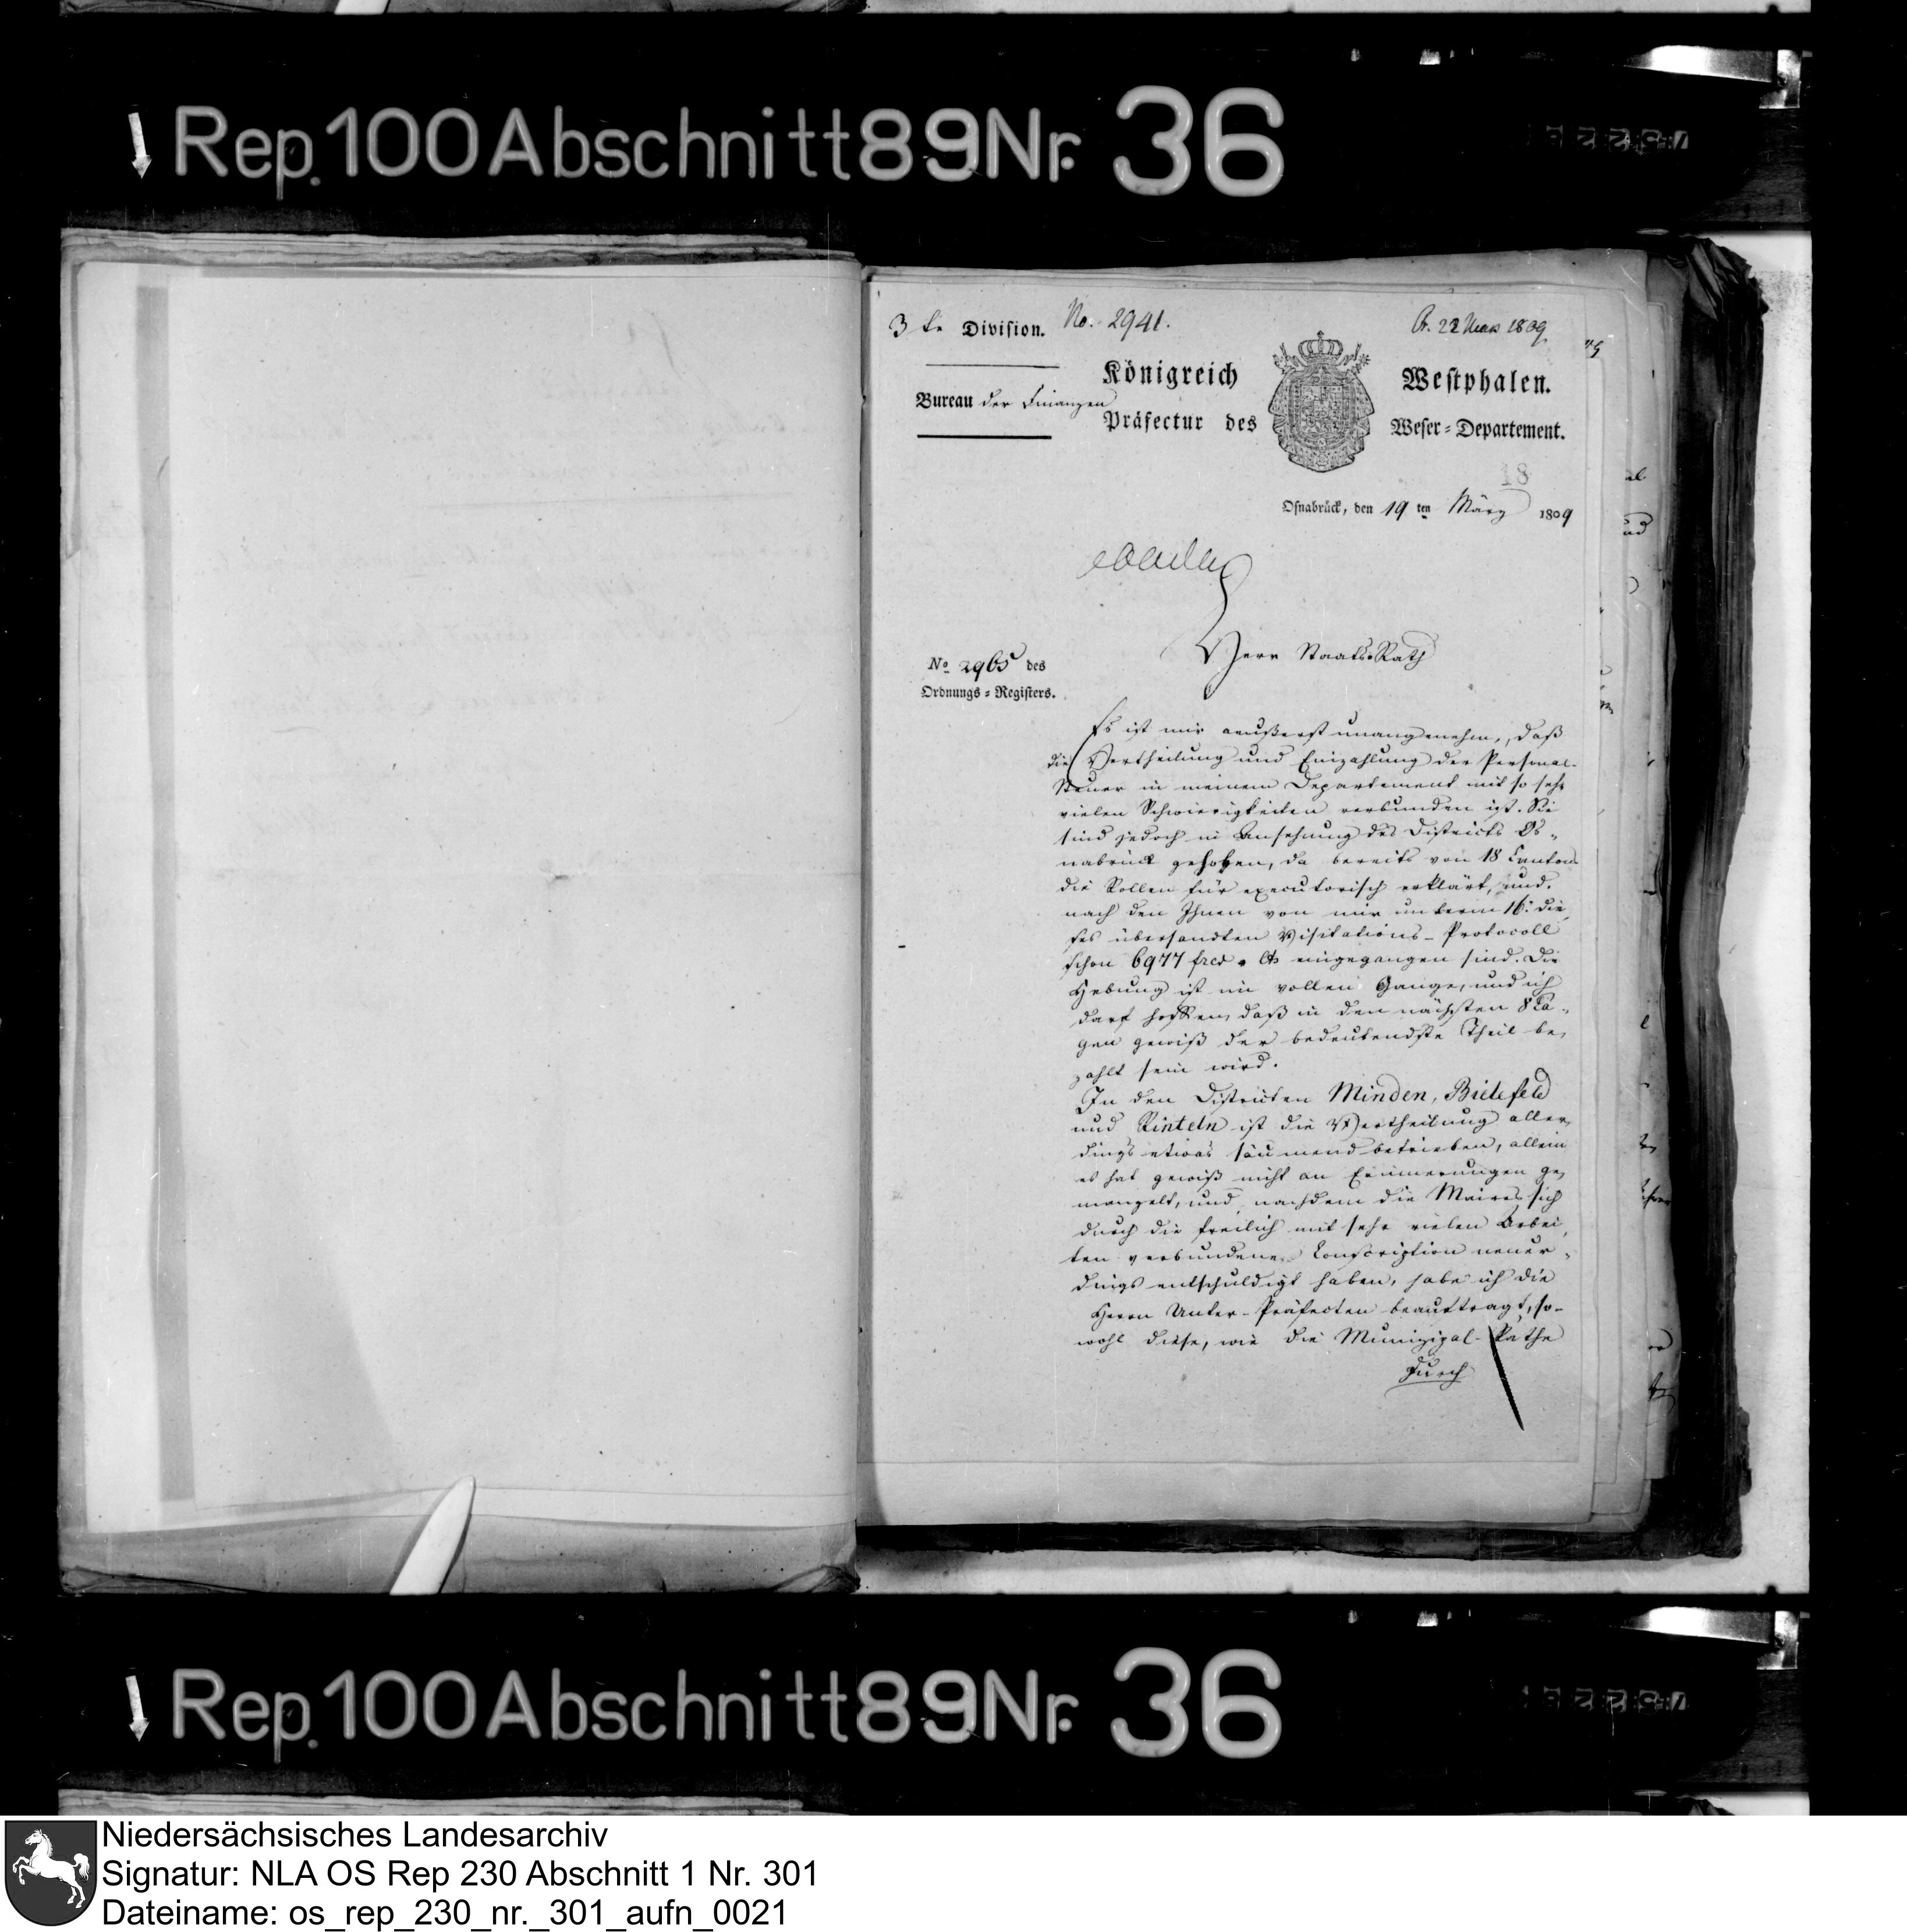 Rep. 100 Abschnitt 89 Nr. 36
3te Division. No. 2941.
Pr. 22 Mars 1809
Königreich Westphalen.
Bureau der Finanzen
Präfectur des Weser-Departement.
18
Osnabrück, den 19 ten März 1809
Herr Staats-Rath
No 2965 des
Ordnungs-Registers.
Es ist mir aeußerst unangenehm, daß
die Vertheilung und Einzahlung der Personal-
Steuer in meinem Departement mit so sehr
vielen Schwierigkeiten verbunden ist. Sie
sind jedoch in Ansehung des Districts Os-
nabrück gehoben, da bereits von 18 Cantons
die Rollen für executorisch erklärt, und
nach den Ihnen von mir unterm 16. die-
ses übersandten Visitations-Protocoll
schon 6977 frcs Cts eingegangen sind. Die
Hebung ist im vollen Gange, und ich
darf hoffen, daß in den nächsten 8 Ta-
gen gewiß der bedeutendste Theil be-
zahlt sein wird.
In den Districten Minden, Bielefeld
und Rinteln ist die Vertheilung aller-
dings etwas säumend betrieben, allein
es hat gewiß nicht an Erinnerungen ge-
mangelt, und nachdem die Maires sich
durch die freilich mit sehr vielen Arbei-
ten verbundene Conscription neuer-
dings entschuldigt haben, habe ich die
Herrn Unter-Präfecten beauftragt, so-
wohl diese, wie die Munizipal-Räthe
durch
Rep. 100 Abschnitt 89 Nr. 36
Niedersächsisches Landesarchiv
Signatur: NLA OS Rep 230 Abschnitt 1 Nr. 301
Dateiname: os_rep_230_nr._301_aufn_0021